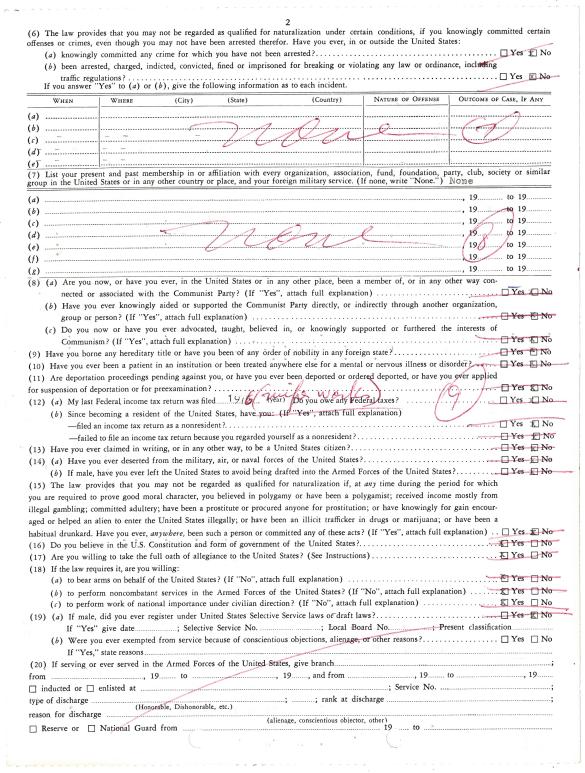 2
(6) The law provides that you may not be regarded as qualified for naturalization under certain conditions, if you knowingly committed certain
offenses or crimes, even though you may not have been arrested therefor. Have you ever, in or outside the United States:
(a) knowingly committed any crime for which you have not been arrested? ☐ Yes ☒ No
(b) been arrested, charged, indicted, convicted, fined or imprisoned for breaking or violating any law or ordinance, including
traffic regulations? ☐ Yes ☒ No
If you answer "Yes" to (a) or (b), give the following information as to each incident.
WHEN WHERE (City) (State) (Country) NATURE OF OFFENSE OUTCOME OF CASE, IF ANY
(a)
(b)
(c) None 7
(d)
(e)
(7) List your present and past membership in or affiliation with every organization, association, fund, foundation, party, club, society or similar
group in the United States or in any other country or place, and your foreign military service. (If none, write "None.") None
(a) , 19 to 19
(b) , 19 to 19
(c) , 19 to 19
(d) None , 19 to 19
(e) , 19 8 to 19
(f) , 19 to 19
(g) , 19 to 19
(8) (a) Are you now, or have you ever, in the United States or in any other place, been a member of, or in any other way con-
nected or associated with the Communist Party? (If "Yes", attach full explanation) ☐ Yes ☒ No
(b) Have you ever knowingly aided or supported the Communist Party directly, or indirectly through another organization,
group or person? (If "Yes", attach full explanation) ☐ Yes ☒ No
(c) Do you now or have you ever advocated, taught, believed in, or knowingly supported or furthered the interests of
Communism? (If "Yes", attach full explanation) ☐ Yes ☒ No
(9) Have you borne any hereditary title or have you been of any order of nobility in any foreign state? ☐ Yes ☒ No
(10) Have you ever been a patient in an institution or been treated anywhere else for a mental or nervous illness or disorder? ☐ Yes ☒ No
(11) Are deportation proceedings pending against you, or have you ever been deported or ordered deported, or have you ever applied
for suspension of deportation or for preexamination? ☐ Yes ☒ No
(12) (a) My last Federal income tax return was filed (year) Do you owe any Federal taxes? 9 ☐ Yes ☒ No
(b) Since becoming a resident of the United States, have you: (If "Yes", attach full explanation)
—filed an income tax return as a nonresident? ☐ Yes ☒ No
—failed to file an income tax return because you regarded yourself as a nonresident? ☐ Yes ☒ No
(13) Have you ever claimed in writing, or in any other way, to be a United States citizen? ☐ Yes ☒ No
(14) (a) Have you ever deserted from the military, air, or naval forces of the United States? ☐ Yes ☒ No
(b) If male, have you ever left the United States to avoid being drafted into the Armed Forces of the United States? ☐ Yes ☒ No
(15) The law provides that you may not be regarded as qualified for naturalization if, at any time during the period for which
you are required to prove good moral character, you believed in polygamy or have been a polygamist; received income mostly from
illegal gambling; committed adultery; have been a prostitute or procured anyone for prostitution; or have knowingly for gain encour-
aged or helped an alien to enter the United States illegally; or have been an illicit trafficker in drugs or marijuana; or have been a
habitual drunkard. Have you ever, anywhere, been such a person or committed any of these acts? (If "Yes", attach full explanation) ☐ Yes ☒ No
(16) Do you believe in the U.S. Constitution and form of government of the United States? ☒ Yes ☐ No
(17) Are you willing to take the full oath of allegiance to the United States? (See Instructions) ☒ Yes ☐ No
(18) If the law requires it, are you willing:
(a) to bear arms on behalf of the United States? (If "No", attach full explanation) ☒ Yes ☐ No
(b) to perform noncombatant services in the Armed Forces of the United States? (If "No", attach full explanation) ☒ Yes ☐ No
(c) to perform work of national importance under civilian direction? (If "No", attach full explanation) ☒ Yes ☐ No
(19) (a) If male, did you ever register under United States Selective Service laws or draft laws? ☐ Yes ☐ No
If "Yes" give date ; Selective Service No. ; Local Board No. ; Present classification
(b) Were you ever exempted from service because of conscientious objections, alienage, or other reasons? ☐ Yes ☐ No
If "Yes," state reasons
(20) If serving or ever served in the Armed Forces of the United States, give branch ;
from , 19 to , 19 , and from , 19 to , 19 ;
☐ inducted or ☐ enlisted at ; Service No. ;
type of discharge ; rank at discharge ;
(Honorable, Dishonorable, etc.)
reason for discharge
(alienage, conscientious objector, other)
☐ Reserve or ☐ National Guard from 19 to